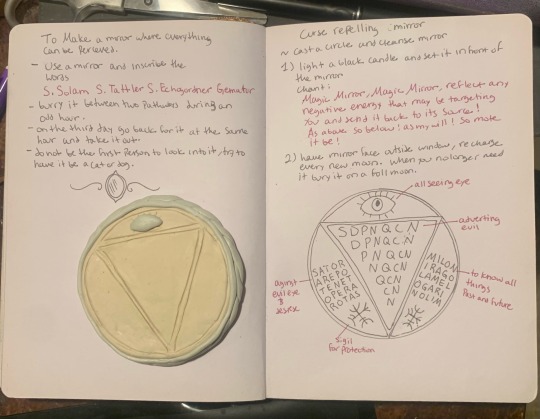 To Make a mirror where everything
can be Percieved.
- Use a mirror and inscribe the
words
S. Solam S. Tattler S. Echogordner Gematur
- burry it between two Pathways during an
odd hour.
- on the third day go back for it at the same
hour and take it out.
- do not be the first Person to look into it, try to
have it be a cat or dog.
Curse repelling mirror
~ cast a circle and cleanse mirror
1) light a black candle and set it in front of
the mirror
Chant:
Magic Mirror, Magic Mirror, reflect any
negative energy that may be targeting
you and send it back to its source!
As above so below! as my will! So mote
it be!
2) have mirror face outside window, recharge
every new moon. When you no longer need
it bury it on a full moon.
all seeing eye
SDPNQCN
DPNQCN
PNQCN
NQCN
QCN
CN
N
adverting
evil
SATOR
AREPO
TENET
OPERA
ROTAS
against
evil eye
&
MILON
IRAGO
LAMEL
OGARI
NOLIM
to know all
things
Past and future
Sigil
for Protection